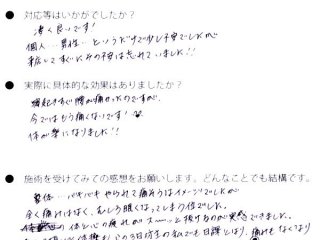 ● 対応等はいかがでしたか?
凄く良いです!
個人…男性…というだけで少し不安でしたが
来店してすぐにその不安は忘れていました!!
● 実際に具体的な効果はありましたか?
寝起きすぐ腰が痛かったのですが、
今ではもう痛くないです!
体が楽になりました!!
● 施術を受けてみての感想をお願いします。どんなことでも結構です。
整体…バキバキやられて痛そうなイメージでしたが
全く痛みはなく、むしろ眠くなってしまう位でした。
体の疲れがスーっと抜けるのが実感できました。
3日坊主の私でも日課になり、痛みもなくなり